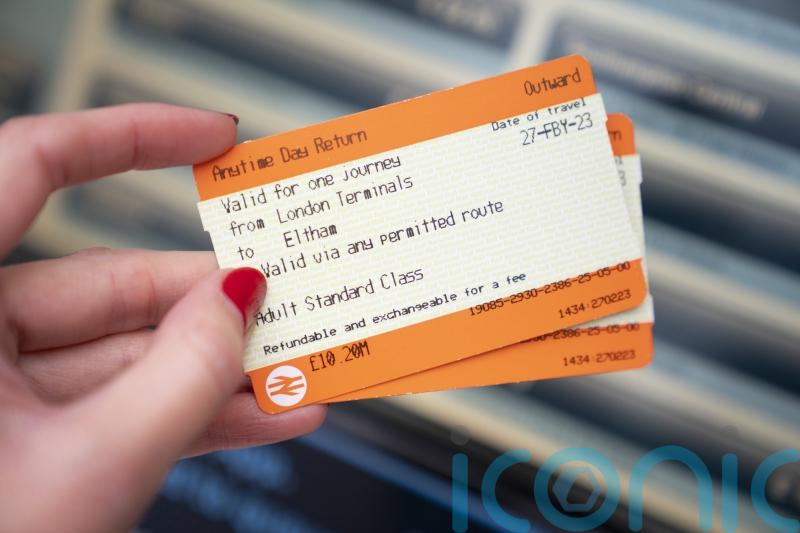 Outward
Anytime Day Return
Date of travel
27-FBY-23
Valid for one journey
from London Terminals
to Eltham
Valid via any permitted route
Adult Standard Class
Refundable and exchangeable for a fee
19085-2930-2386-25-05-00
£10.20M
1434 270223
2386-25-05-00
1434 270223
iconic